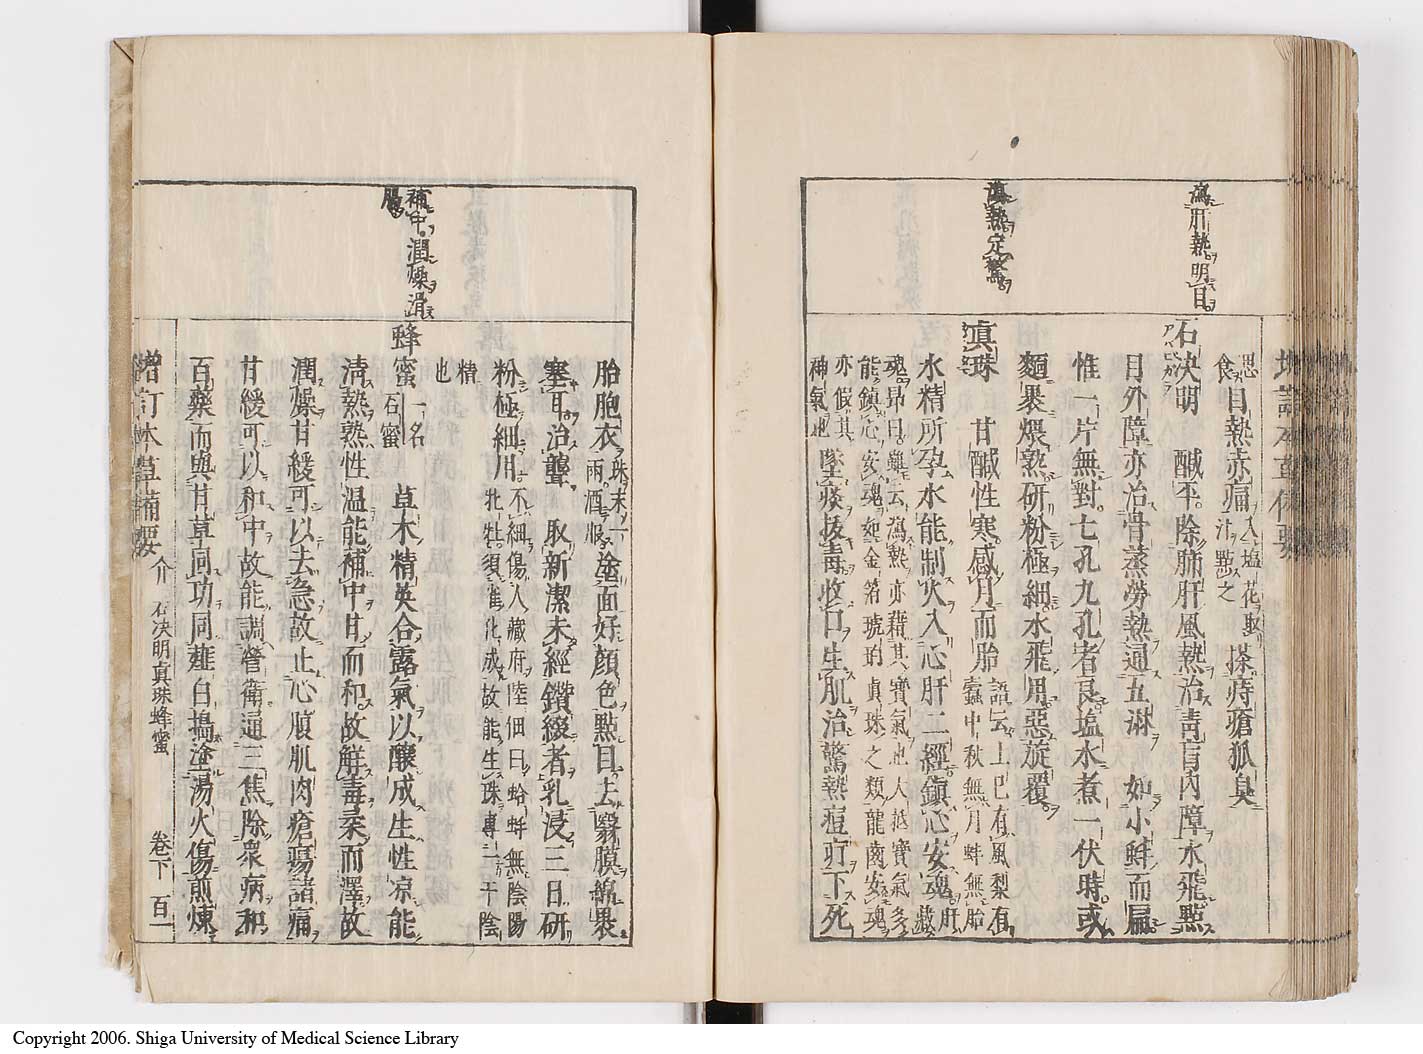 瀉肝熱明目
瀉熱定驚
思食目熱赤痛入塩花取汁點之搽痔瘡狐臭
石決明 鹹平除肺肝風熱治青盲內障水飛點
アハビカラ
目外障亦治骨蒸勞熱通五淋 如小蚌而扁
惟一片無對七孔九孔者良塩水煮一伏時或
麵裹煨熟研粉極細水飛用惡旋覆
真珠 甘鹹性寒感月而胎語云上巳有風梨有蠧中秋無月蚌無胎
水精所孕水能制火入心肝二經鎮心安魂肝藏
魂昂曰雖云瀉熱亦藉其寶氣也大抵寶氣多
能鎮心安魂如金箔琥珀真珠之類龍齒安魂
亦假其神氣也墜痰拔毒收口生肌治驚熱痘疔下死
補中潤燥滑腸
胎胞衣珠末一兩酒服塗面好顏色點目去翳膜綿裹
塞耳治聾 取新潔未經鑽綴者乳浸三日研
粉極細用不細傷人藏府陸佃曰蛤蚌無陰陽牝牡須雀化成故能生珠專一于陰
精也
蜂蜜一名石蜜 草木精英合露氣以釀成生性凉能
清熱熟性溫能補中甘而和故解毒柔而澤故
潤燥甘緩可以去急故止心腹肌肉瘡瘍諸痛
甘緩可以和中故能調營衛通三焦除衆病和
百藥而與甘草同功同薤白搗塗湯火傷煎煉
增訂本草備要 介 石決明真珠蜂蜜 卷下 百一